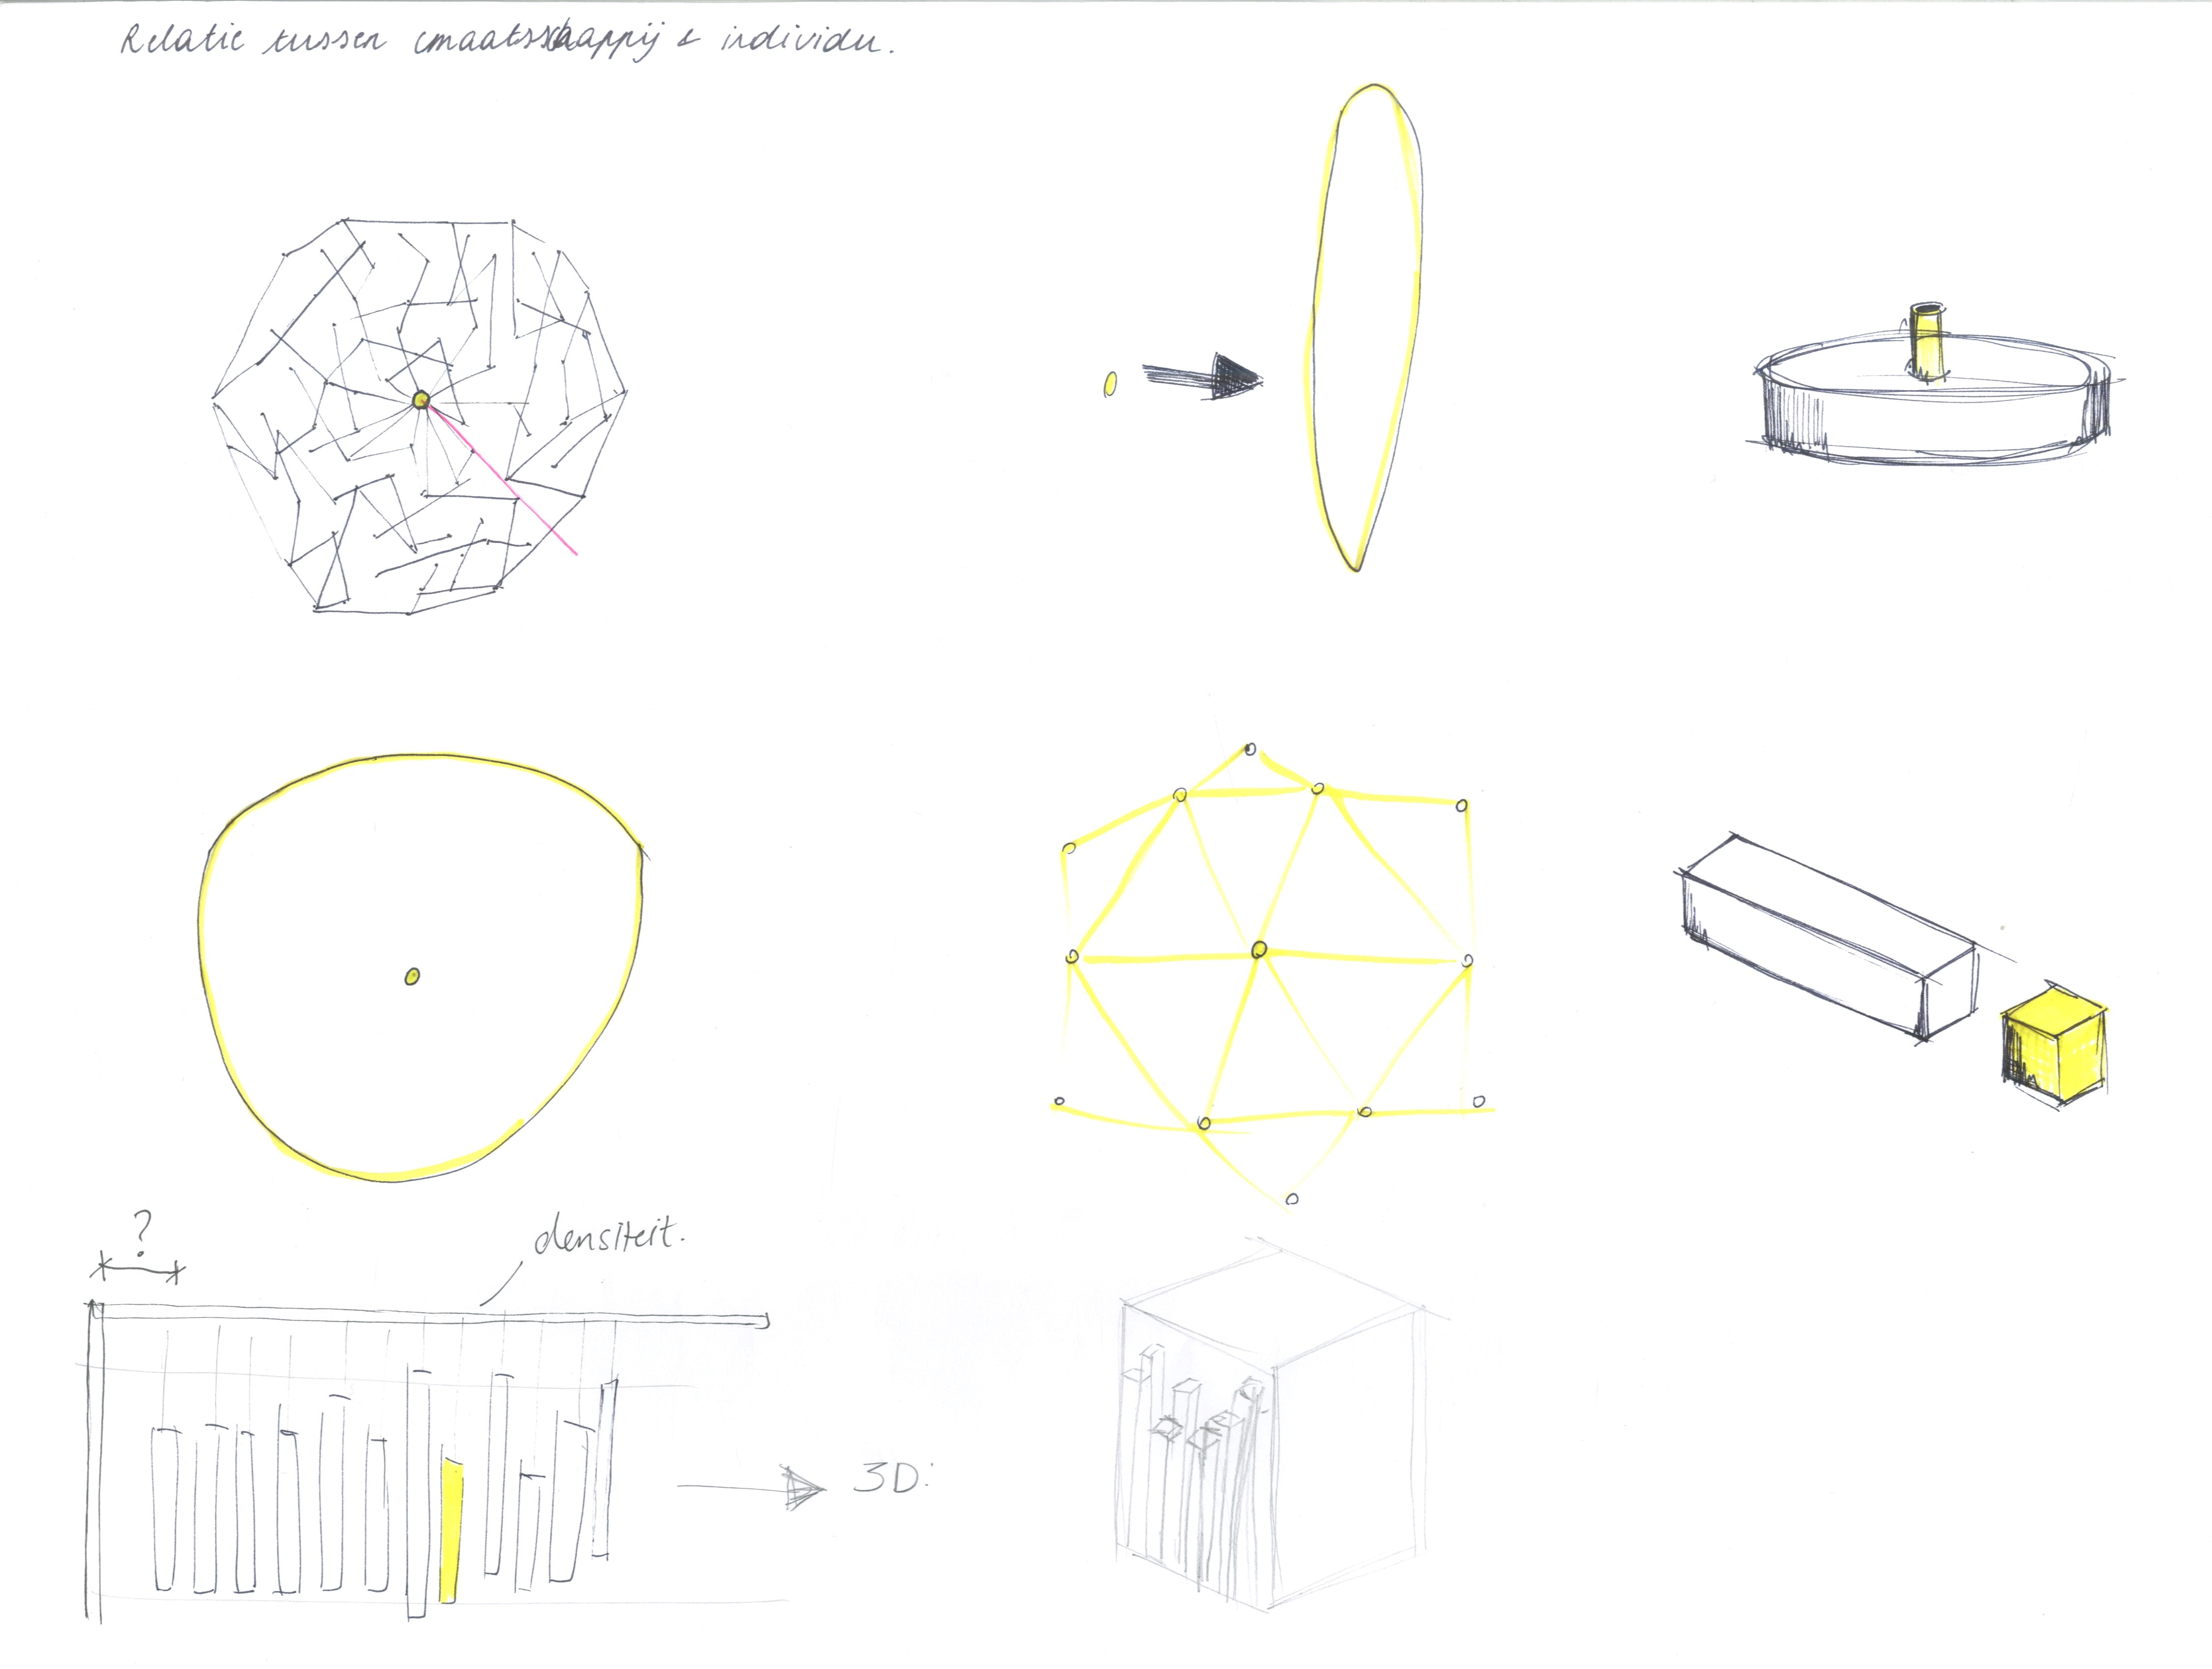 Relatie tussen maatschappij & individu.
?
densiteit.
3D: